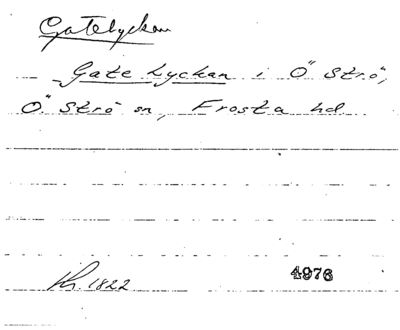 Gatelyckan
Gate Lyckan i Ö Strö,
Ö Strö sn, Frosta hd.
Kr. 1822
4976